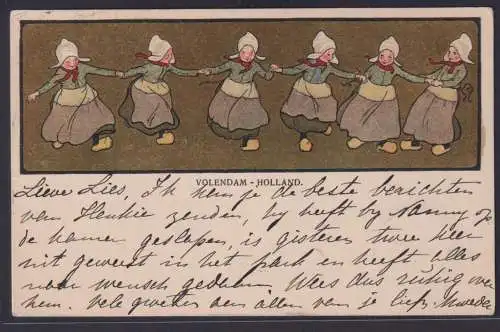 VOLENDAM - HOLLAND.
Lieve Lies, Ik kan je de beste berichten
van Henkie zenden, hy heeft by Nanny op
de kamer geslapen, is gisteren twee keer
uit geweest in het park en heeft alles
naar wensch gedaan. Wees dus rustig over
hem. Vele groeten aan allen van je liefh. Moeder